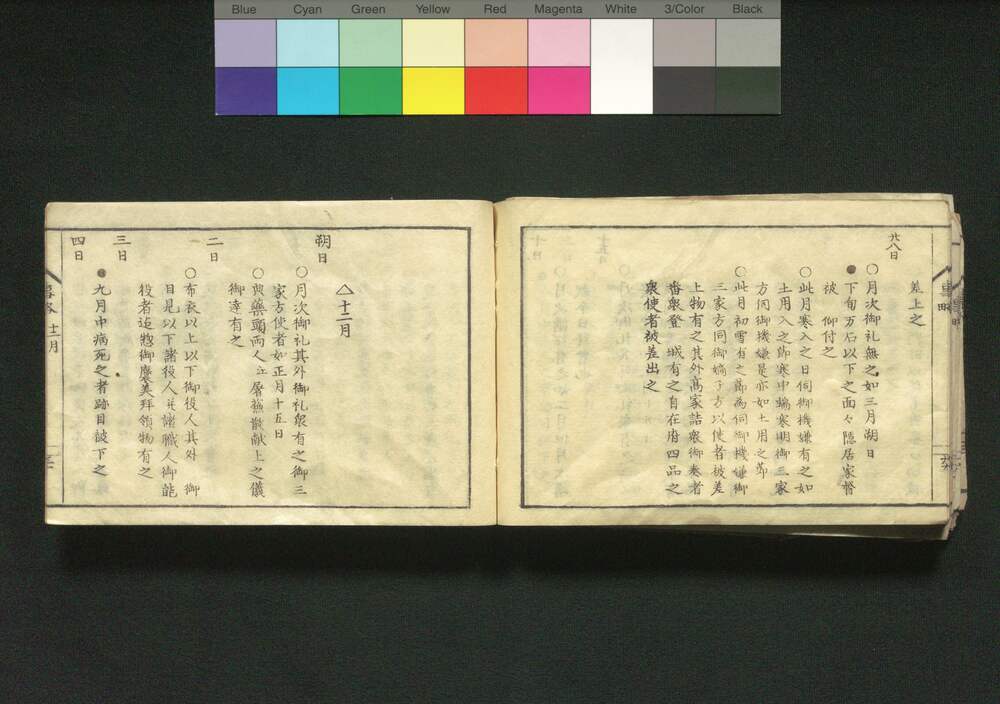 Blue Cyan Green Yellow Red Magenta White 3/Color Black
差上之
廿八日
○月次御礼無之如三月朔日
●下旬万石以下之面々隠居家督
被 仰付之
○此月寒入之日伺御機嫌有之如
土用入之節寒中端寒明御三家
方伺御機嫌是亦如土用之節
○此月初雪有之節為伺御機嫌御
三家方同御嫡子方以使者被差
上物有之其外高家詰衆御奏者
番衆登 城有之自在府四品之
衆使者被差出之
△十二月
朔日
○月次御礼其外御礼衆有之御三
家方使者如正月十五日
○典薬頭両人江屠蘇散献上之儀
御達有之
二日
○布衣以上以下御役人其外 御
目見以下諸役人并諸職人御能
役者迄惣御褒美拝領物有之
三日
四日
●九月中病死之者跡目被下之
十二月